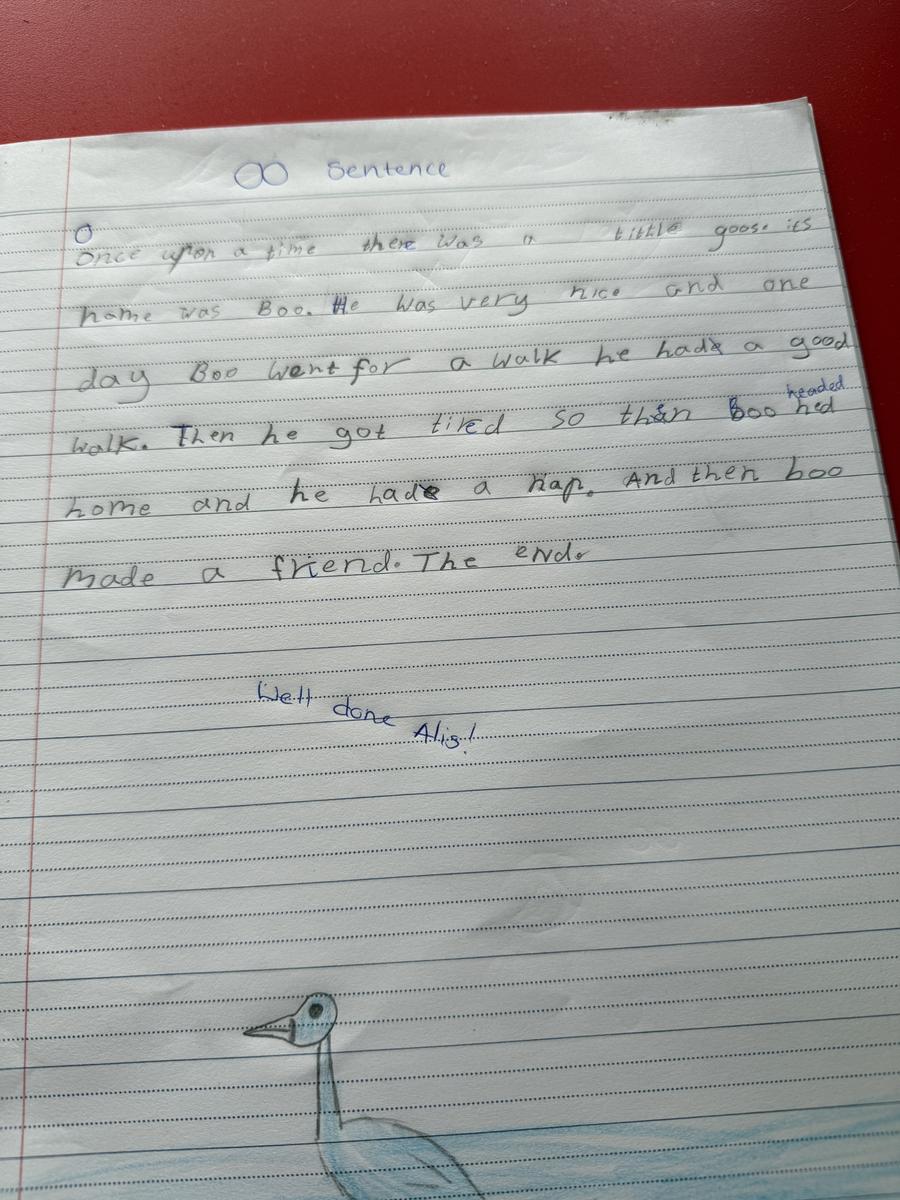 OO Sentence
O
once upon a time there was a little goose its
name was Boo. He was very nice and one
day Boo went for a walk he had a good
headed
walk. Then he got tired so then Boo hed
home and he had a nap. And then boo
made a friend. The end.
Well done Alis!